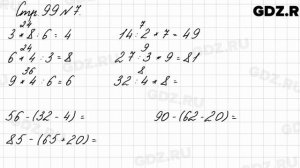 Стр. 99 № 7. GDZ.R
24 7
3 * 8 : 6 = 4 14 : 2 * 7 = 49
24 9
6 * 4 : 3 = 8 27 : 3 * 9 = 81
36 8
9 * 4 : 6 = 6 32 : 4 * 8 =
56 - (32 - 4) = 90 - (62 - 20) =
85 - (65 + 20) =
GDZ.RU